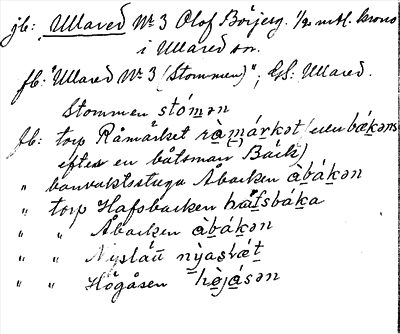 jb: Ullared No. 3 Olof Börjesg. 1/2 mtl. krono
i Ullared sn.
fb: "Ullared No. 3 (Stommen)"; GS: Ullared.
Stommen stómən
fb: torp Råmärket rà̱márkət (eller bǽkəns
efter en båtsman Bäck)
" banvaktsstuga Åbacken àbákən
" torp Hafsbacken hafsbáka
" " Åbacken àbákən
" " Nyslätt nỳaslæ̀t
" " Högåsen hø̀jásən